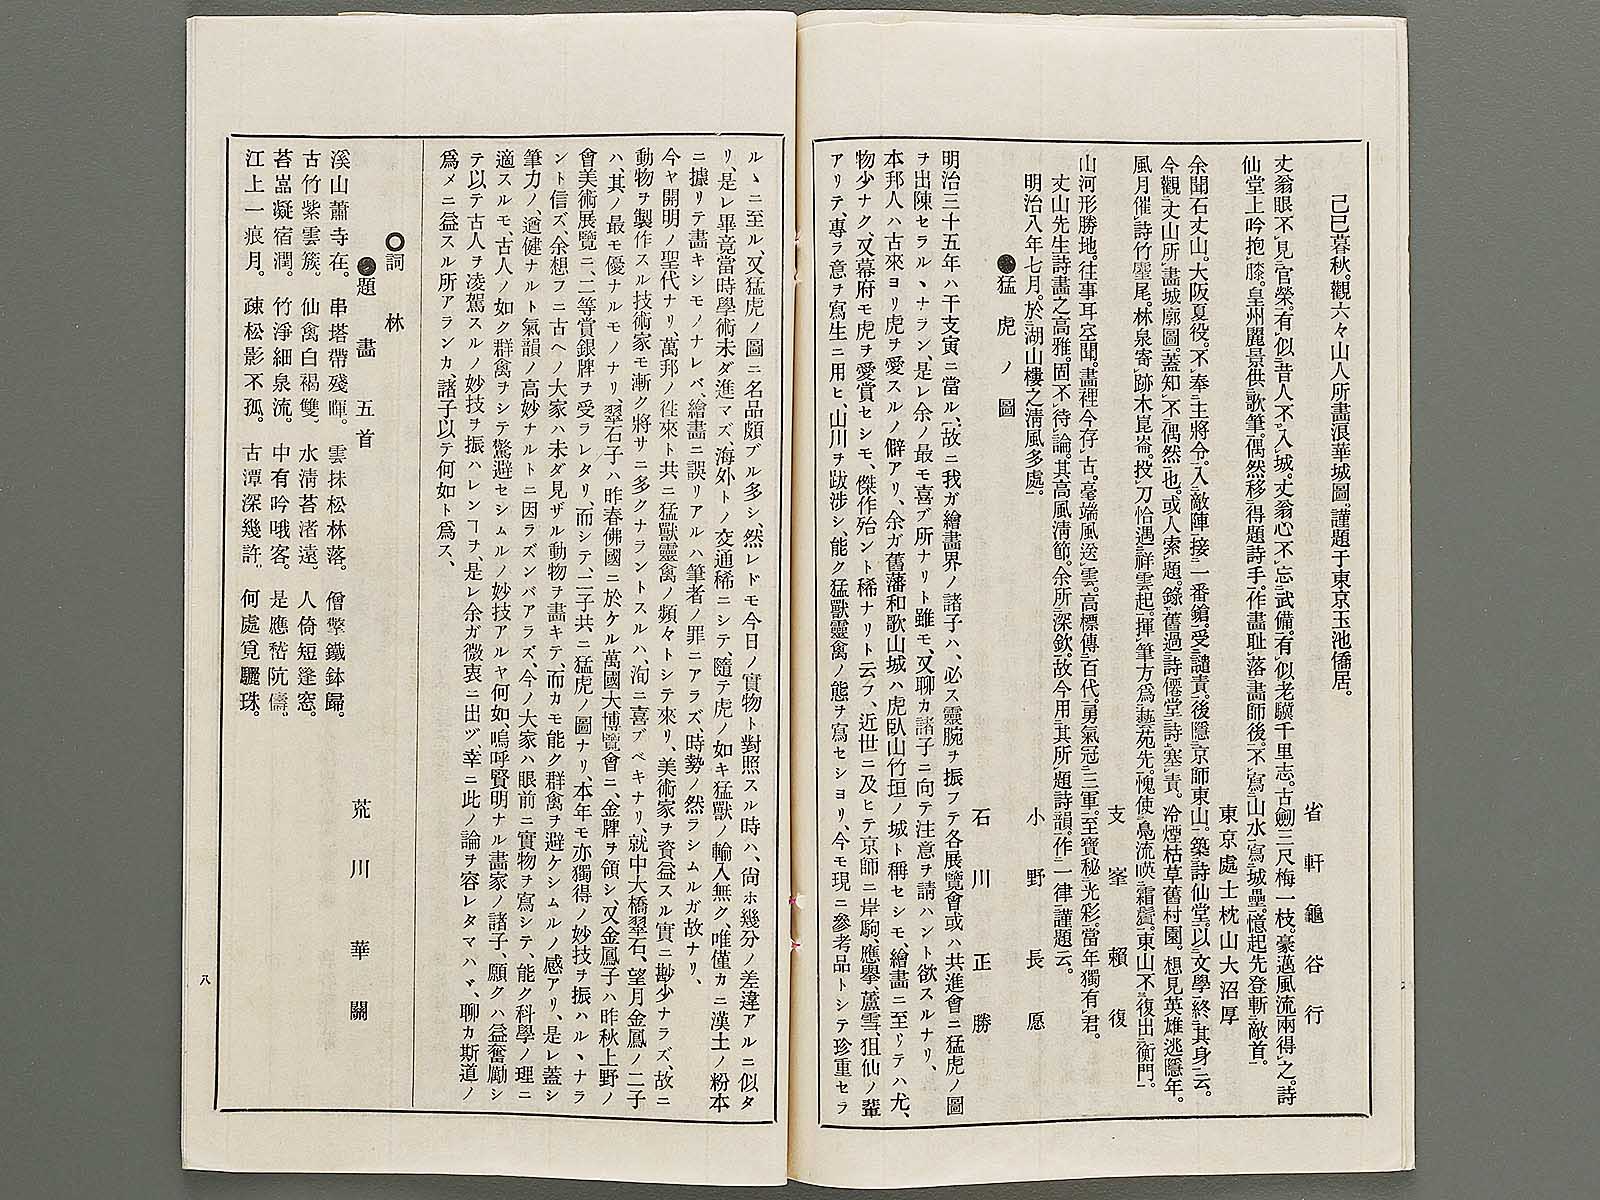 己巳暮秋。觀六々山人所畫浪華城圖。謹題于東京玉池僑居。
省軒龜谷行
丈翁眼不見官榮。有似昔人不入城。丈翁心不忘武備。有似老驥千里志。古劍三尺梅一枝。豪邁風流兩得之。詩
仙堂上吟抱膝。皇州麗景供歌筆。偶然移得題詩手。作畫耻落畫師後。不寫山水寫城壘。憶起先登斬敵首。
東京處士枕山大沼厚
余聞石丈山。大阪夏役。不奉主將令。入敵陣接一番鎗。受譴責。後隱京師東山。築詩仙堂。以文學終其身云。
今觀丈山所畫城廓圖。蓋知不偶然也。或人索題。錄舊過詩僊堂詩塞責。冷煙枯草舊村園。想見英雄逃隱年。
風月催詩竹麈尾。林泉寄跡木崑崙。投刀恰遇祥雲起。揮筆方爲藝苑先。愧使鳧流喚霜鬢。東山不復出衡門。
支峯賴復
山河形勝地。往事耳空聞。畫裡今存古。毫端風送雲。高標傳百代。勇氣冠三軍。至寶秘光彩。當年獨有君。
丈山先生詩畫之高雅。固不待論。其高風淸節。余所深欽。故今用其所題詩韻。作一律謹題云。
明治八年七月。於湖山樓之淸風多處。
小野長愿
●猛虎ノ圖
石川正勝
明治三十五年ハ干支寅ニ當ル、故ニ我ガ繪畫界ノ諸子ハ、必ス靈腕ヲ振フテ各展覽會或ハ共進會ニ猛虎ノ圖
ヲ出陳セラルヽナラン、是レ余ノ最モ喜ブ所ナリト雖モ、又聊カ諸子ニ向テ注意ヲ請ハント欲スルナリ、
本邦人ハ古來ヨリ虎ヲ愛スルノ僻アリ、余ガ舊藩和歌山城ハ虎臥山竹垣ノ城ト稱セシモ、繪畫ニ至リテハ尤、
物少ナク、又幕府モ虎ヲ愛賞セシモ、傑作殆ント稀ナリト云フ、近世ニ及ヒテ京師ニ岸駒、應擧、蘆雪、狙仙ノ輩
アリテ、專ラ意ヲ寫生ニ用ヒ、山川ヲ跋涉シ、能ク猛獸靈禽ノ態ヲ寫セシヨリ、今モ現ニ參考品トシテ珍重セラ
ルヽニ至ル、又猛虎ノ圖ニ名品頗ブル多シ、然レドモ今日ノ實物ト對照スル時ハ、尙ホ幾分ノ差違アルニ似タ
リ、是レ畢竟當時學術未ダ進マズ、海外トノ交通稀ニシテ、隨テ虎ノ如キ猛獸ノ輸入無ク、唯僅カニ漢土ノ粉本
ニ據リテ畫キシモノナレバ、繪畫ニ誤リアルハ筆者ノ罪ニアラズ、時勢ノ然ラシムルガ故ナリ、
今ヤ開明ノ聖代ナリ、萬邦ノ徃來ト共ニ猛獸靈禽ノ頻々トシテ來リ、美術家ヲ資益スル實ニ尠少ナラズ、故ニ
動物ヲ製作スル技術家モ漸ク將サニ多クナラントスルハ、洵ニ喜ブベキナリ、就中大橋翠石、望月金鳳ノ二子
ハ、其ノ最モ優ナルモノナリ、翠石子ハ昨春佛國ニ於ケル萬國大博覽會ニ、金牌ヲ領シ、又金鳳子ハ昨秋上野ノ
會美術展覽ニ、二等賞銀牌ヲ受ラレタリ、而シテ、二子共ニ猛虎ノ圖ナリ、本年モ亦獨得ノ妙技ヲ振ハルヽナラ
ント信ズ、余想フニ古ヘノ大家ハ未ダ見ザル動物ヲ畫キテ、而カモ能ク群禽ヲ避ケシムルノ感アリ、是レ蓋シ
筆力ノ、遒健ナルト氣韻ノ高妙ナルトニ因ラズンバアラズ、今ノ大家ハ眼前ニ實物ヲ寫シテ、能ク科學ノ理ニ
適スルモ、古人ノ如ク群禽ヲシテ驚避セシムルノ妙技アルヤ何如、嗚呼賢明ナル畫家ノ諸子、願クハ益奮勵シ
テ以テ古人ヲ凌駕スルノ妙技ヲ振ハレンヿヲ、是レ余ガ微衷ニ出ヅ、幸ニ此ノ論ヲ容レタマハヾ、聊カ斯道ノ
爲メニ益スル所アランカ、諸子以テ何如ト爲ス、
○詞林
●題畫五首
荒川華關
溪山蕭寺在。串塔帶殘暉。雲抹松林落。僧擎鐵鉢歸。
古竹紫雲簇。仙禽白褐雙。水淸苔渚遠。人倚短篷窓。
苔嵓凝宿潤。竹淨細泉流。中有吟哦客。是應嵆阮儔。
江上一痕月。疎松影不孤。古潭深幾許。何處覓驪珠。
八